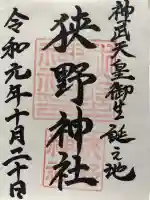 神武天皇御生誕之地
狭野神社
令和元年十月二十日